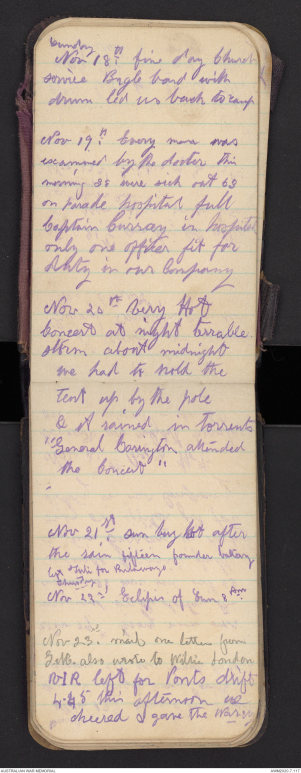 Sunday
Nov 18th fine day Church
service Bugle band with
drum led us back to camp
Nov 19th Every man was
examined by the doctor this
morning 38 were sick out 63
on Parade hospital full
Captain Curray in hospital
only one officer fit for
duty in our Company
Nov 20th Very Hot
Concert at night terrable
storm about midnight
we had to hold the
Tent up by the pole
& it rained in torrents
"General Carington attended
the Concert"
Nov 21st sun very hot after
the rain fifteen pounder battery
left for
Thursday
Nov 22nd Eclipse of Sun 8 Am
Nov 23. one letter from
also wrote to Willie London
NIR left for Ports drift
4.45 this afternoon we
cheered & gave the
AUSTRALIAN WAR MEMORIAL